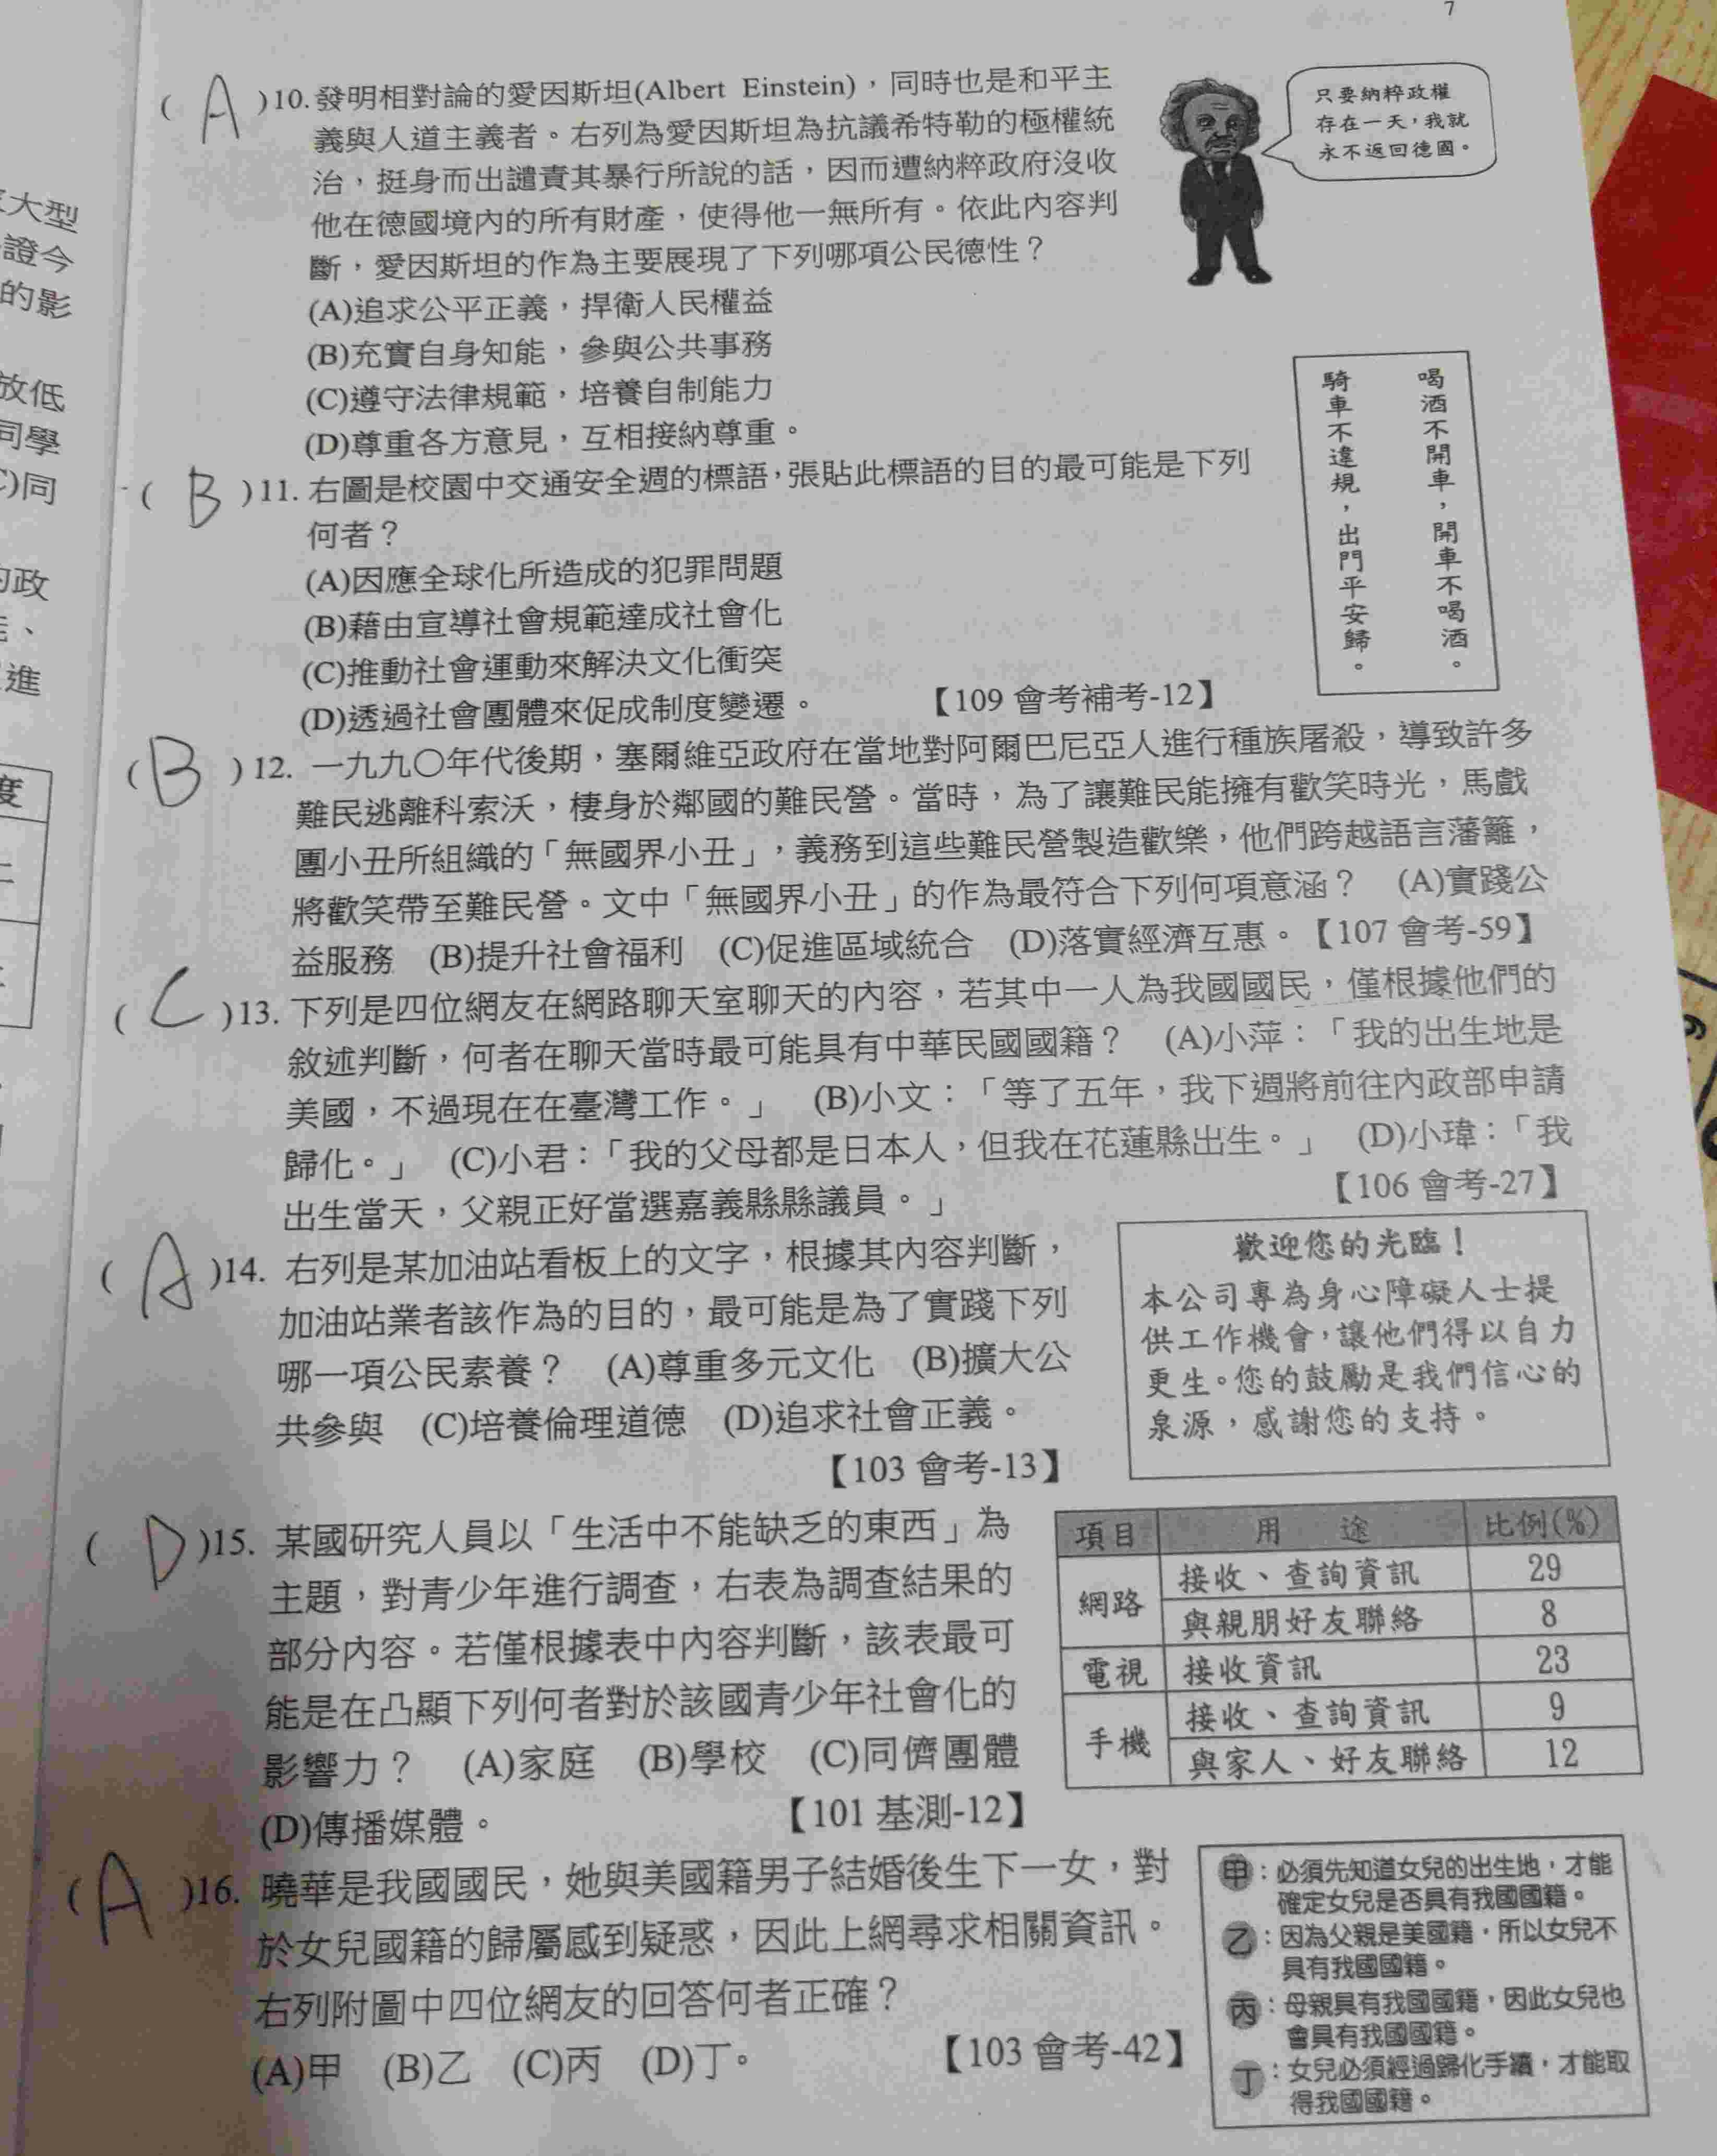 7
(A)10.發明相對論的愛因斯坦(Albert Einstein)，同時也是和平主
義與人道主義者。右列為愛因斯坦為抗議希特勒的極權統
治，挺身而出譴責其暴行所說的話，因而遭納粹政府沒收
他在德國境內的所有財產，使得他一無所有。依此內容判
斷，愛因斯坦的作為主要展現了下列哪項公民德性？
(A)追求公平正義，捍衛人民權益
(B)充實自身知能，參與公共事務
(C)遵守法律規範，培養自制能力
(D)尊重各方意見，互相接納尊重。
只要納粹政權
存在一天，我就
永不返回德國。
(B)11.右圖是校園中交通安全週的標語，張貼此標語的目的最可能是下列
何者？
(A)因應全球化所造成的犯罪問題
(B)藉由宣導社會規範達成社會化
(C)推動社會運動來解決文化衝突
(D)透過社會團體來促成制度變遷。 【109 會考補考-12】
喝酒不開車，開車不喝酒。
騎車不違規，出門平安歸。
(B)12. 一九九〇年代後期，塞爾維亞政府在當地對阿爾巴尼亞人進行種族屠殺，導致許多
難民逃離科索沃，棲身於鄰國的難民營。當時，為了讓難民能擁有歡笑時光，馬戲
團小丑所組織的「無國界小丑」，義務到這些難民營製造歡樂，他們跨越語言藩籬，
將歡笑帶至難民營。文中「無國界小丑」的作為最符合下列何項意涵？ (A)實踐公
益服務 (B)提升社會福利 (C)促進區域統合 (D)落實經濟互惠。【107 會考-59】
(C)13.下列是四位網友在網路聊天室聊天的內容，若其中一人為我國國民，僅根據他們的
敘述判斷，何者在聊天當時最可能具有中華民國國籍？ (A)小萍：「我的出生地是
美國，不過現在在臺灣工作。」 (B)小文：「等了五年，我下週將前往內政部申請
歸化。」 (C)小君：「我的父母都是日本人，但我在花蓮縣出生。」 (D)小瑋：「我
出生當天，父親正好當選嘉義縣縣議員。」 【106 會考-27】
(A)14. 右列是某加油站看板上的文字，根據其內容判斷，
加油站業者該作為的目的，最可能是為了實踐下列
哪一項公民素養？ (A)尊重多元文化 (B)擴大公
共參與 (C)培養倫理道德 (D)追求社會正義。
【103 會考-13】
歡迎您的光臨！
本公司專為身心障礙人士提
供工作機會，讓他們得以自力
更生。您的鼓勵是我們信心的
泉源，感謝您的支持。
(D)15. 某國研究人員以「生活中不能缺乏的東西」為
主題，對青少年進行調查，右表為調查結果的
部分內容。若僅根據表中內容判斷，該表最可
能是在凸顯下列何者對於該國青少年社會化的
影響力？ (A)家庭 (B)學校 (C)同儕團體
(D)傳播媒體。 【101 基測-12】
項目 用途 比例(%)
網路 接收、查詢資訊 29
與親朋好友聯絡 8
電視 接收資訊 23
手機 接收、查詢資訊 9
與家人、好友聯絡 12
(A)16. 曉華是我國國民，她與美國籍男子結婚後生下一女，對
於女兒國籍的歸屬感到疑惑，因此上網尋求相關資訊。
右列附圖中四位網友的回答何者正確？
(A)甲 (B)乙 (C)丙 (D)丁。 【103 會考-42】
甲：必須先知道女兒的出生地，才能
確定女兒是否具有我國國籍。
乙：因為父親是美國籍，所以女兒不
具有我國國籍。
丙：母親具有我國國籍，因此女兒也
會具有我國國籍。
丁：女兒必須經過歸化手續，才能取
得我國國籍。
大型
證今
的影
放低
同學
)同
政
、
進
度